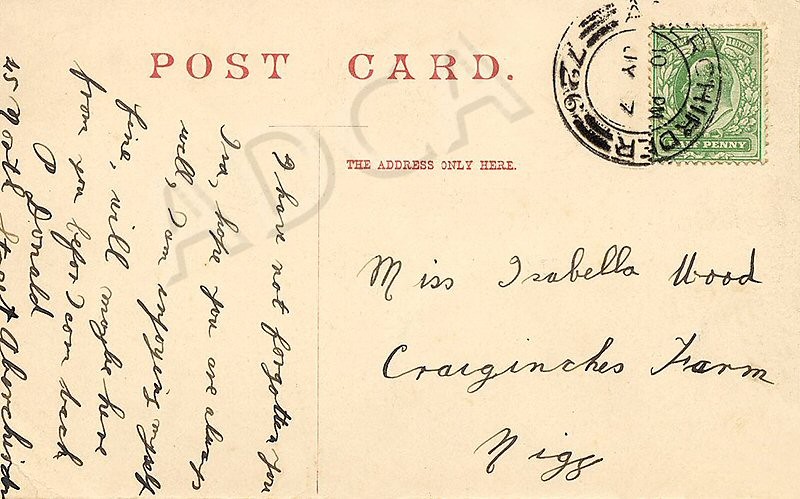 POST CARD.
THE ADDRESS ONLY HERE.
I have not forgotten you
Isa, hope you are always
well, I am enjoying myself
fine, will maybe here
from you befor I com back
P. Donald
45 North St Aberchirder
Miss Isabella Wood
Craiginches Farm
Nigg
ABERCHIRDER
JY 7
10 PM
726
HALF PENNY
ADCA